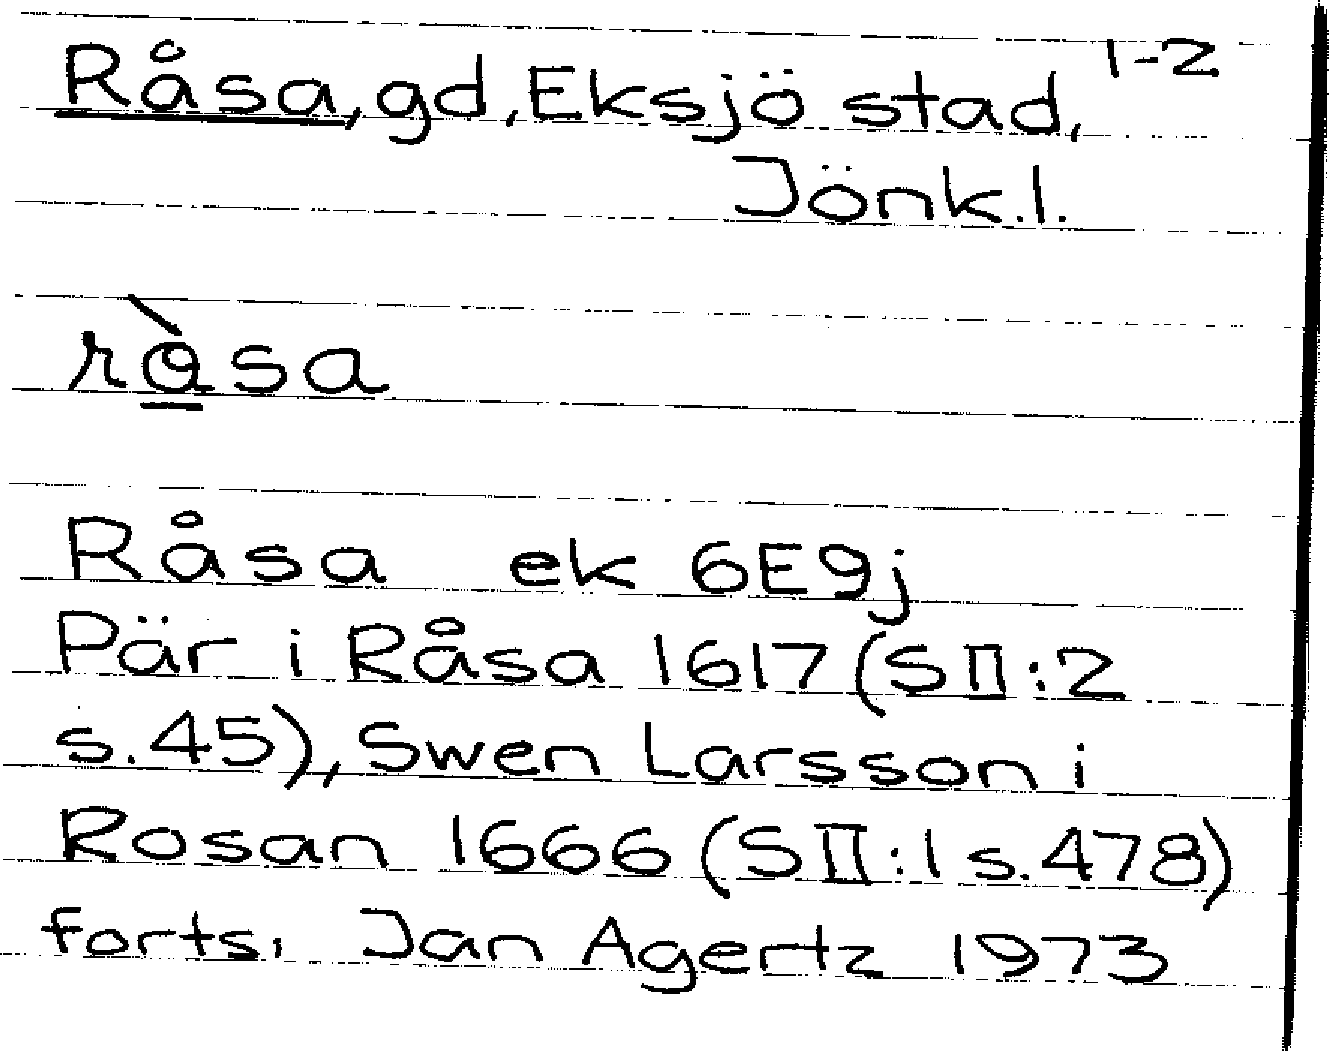 Råsa, gd, Eksjö stad, 1-2
Jönk.l.
rə̀sa
Råsa ek 6E9j
Pär i Råsa 1617 (S II:2
s.45), Swen Larsson i
Rosan 1666 (S II:1 s.478)
forts. Jan Agertz 1973